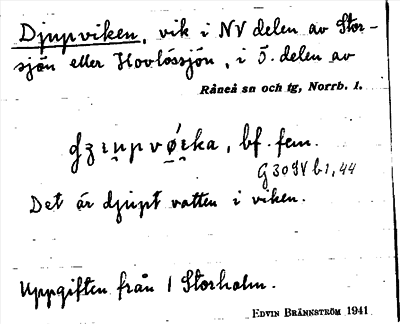 Djupviken, vik i NV delen av Stor-
sjön eller Hovlössjön, i S. delen av
Råneå sn och tg, Norrb. l.
bf. fem.
Det är djupt vatten i viken.
Uppgiften från 1 Storholm.
EDVIN BRÄNNSTRÖM 1941